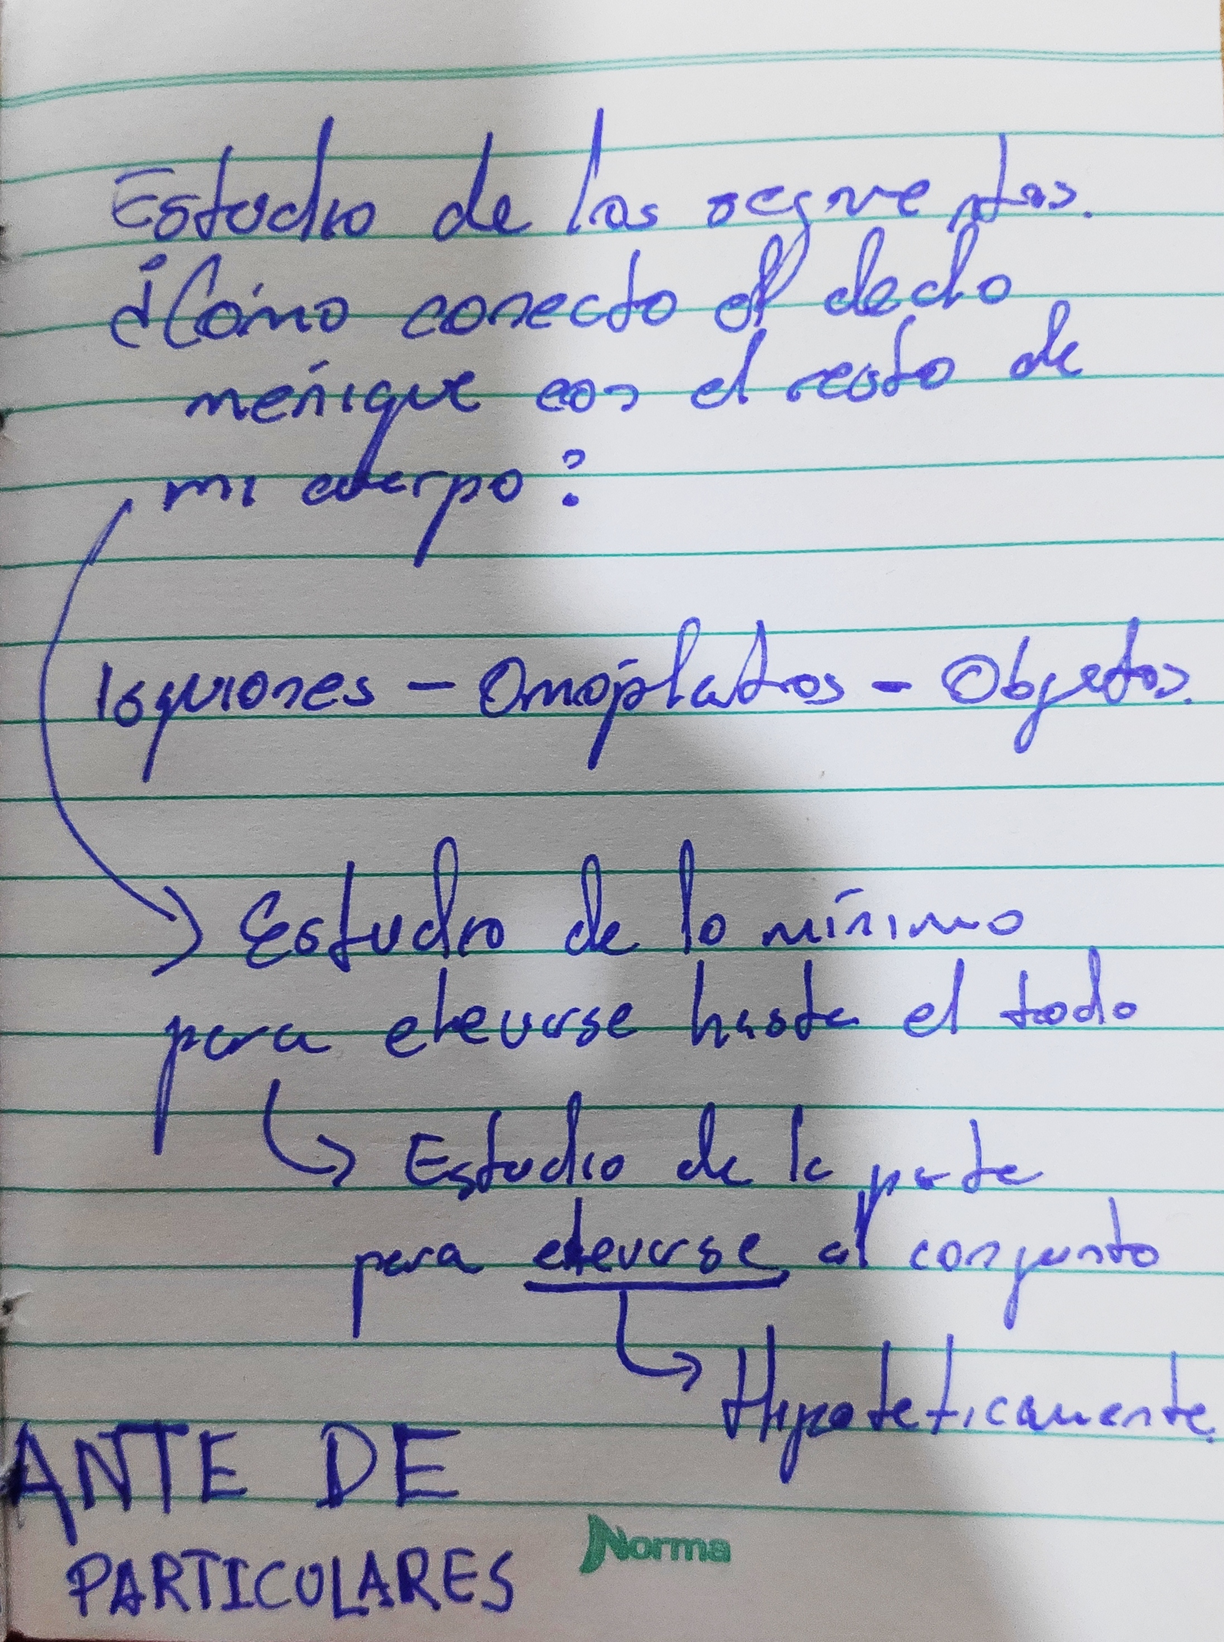 Estudio de los segmentos.
¿Cómo conecto el dedo
meñique con el resto de
mi cuerpo?
Isquiones - Omóplatos - Objetos.
Estudio de lo mínimo
para elevarse hasta el todo
Estudio de la parte
para elevarse al conjunto
Hipotéticamente.
ANTE DE
PARTICULARES
Norma